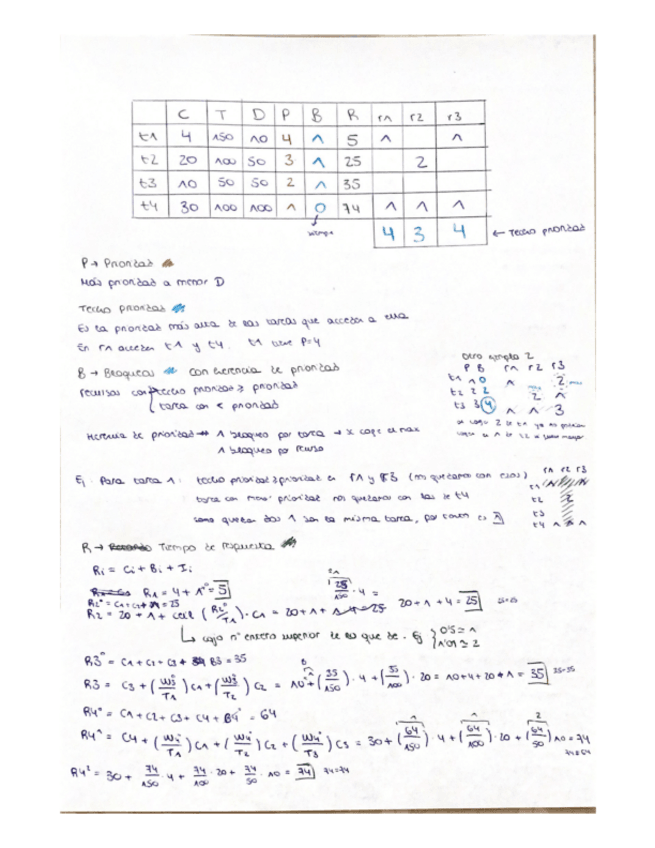 C T D P B R r1 r2 r3
t1 4 150 10 4 1 5 1 1
t2 20 100 50 3 1 25 2
t3 10 50 50 2 1 35
t4 30 100 100 1 0 74 1 1 1
siempre
4 3 4 ← Techo prioridad
P → Prioridad
Más prioridad a menor D
Techo prioridad
Es la prioridad más alta de las tareas que acceden a ella
En r1 acceden t1 y t4. t1 tiene P=4
B → Bloqueos con herencia de prioridad
recursos con techo prioridad ≥ prioridad
tarea con < prioridad
Herencia de prioridad → 1 bloqueo por tarea → x coge el max
1 bloqueo por recurso
Otro ejemplo 2
P B r1 r2 r3
t1 1 0 1 2
t2 2 2 2 1
t3 3 4 1 1 3
Ej Para tarea 1: techo prioridad ≥ prioridad en r1 y r3 (nos quedamos con esos)
tarea con menor prioridad nos quedamos con las de t4
como quedan dos 1 son la misma tarea, por tanto es 1
r1 r2 r3
t1
t2 2
t3
t4 1 1 1
R → Tiempo de respuesta
Ri = Ci + Bi + Ii
R1 = 4 + 1 = 5
R2º = C1 + C2 + B1 = 25
R2 = 20 + 1 + ceil (R2º/T1) · C1 = 20+1+ 25/150 · 4 = 20+1+4 = 25 25=25
↳ cojo nº entero superior de lo que de. Ej 0'5 ≃ 1
1'01 ≃ 2
R3º = C1 + C2 + C3 + B3 = 35
R3 = C3 + (W3º/T1) C1 + (W3º/T2) C2 = 10 + (35/150) · 4 + (35/100) · 20 = 10+4+20+1 = 35 35=35
R4º = C1 + C2 + C3 + C4 + B4º = 64
R4¹ = C4 + (W4º/T1) C1 + (W4º/T2) C2 + (W4º/T3) C3 = 30 + (64/150) · 4 + (64/100) · 20 + (64/50) 10 = 74
74≠64
R4² = 30 + 74/150 · 4 + 74/100 · 20 + 74/50 · 10 = 74 74=74